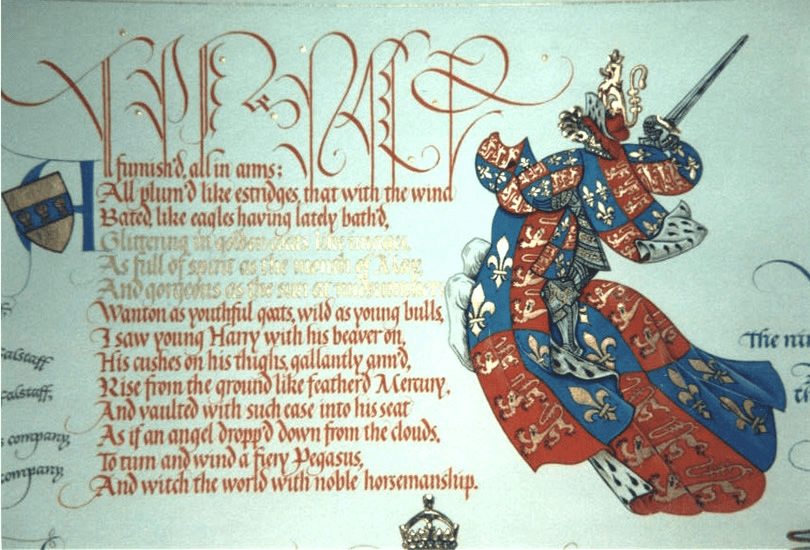 All furnish'd, all in arms;
All plum'd like estridges, that with the wind
Bated, like eagles having lately bath'd,
Glittering in golden coats like images,
As full of spirit as the month of May,
And gorgeous as the sun at midsummer
Wanton as youthful goats, wild as young bulls,
I saw young Harry with his beaver on,
His cushes on his thighs, gallantly arm'd,
Rise from the ground like feather'd Mercury,
And vaulted with such ease into his seat
As if an angel dropp'd down from the clouds,
To turn and wind a fiery Pegasus,
And witch the world with noble horsemanship.
alstaff
alstaff,
company,
company,
The